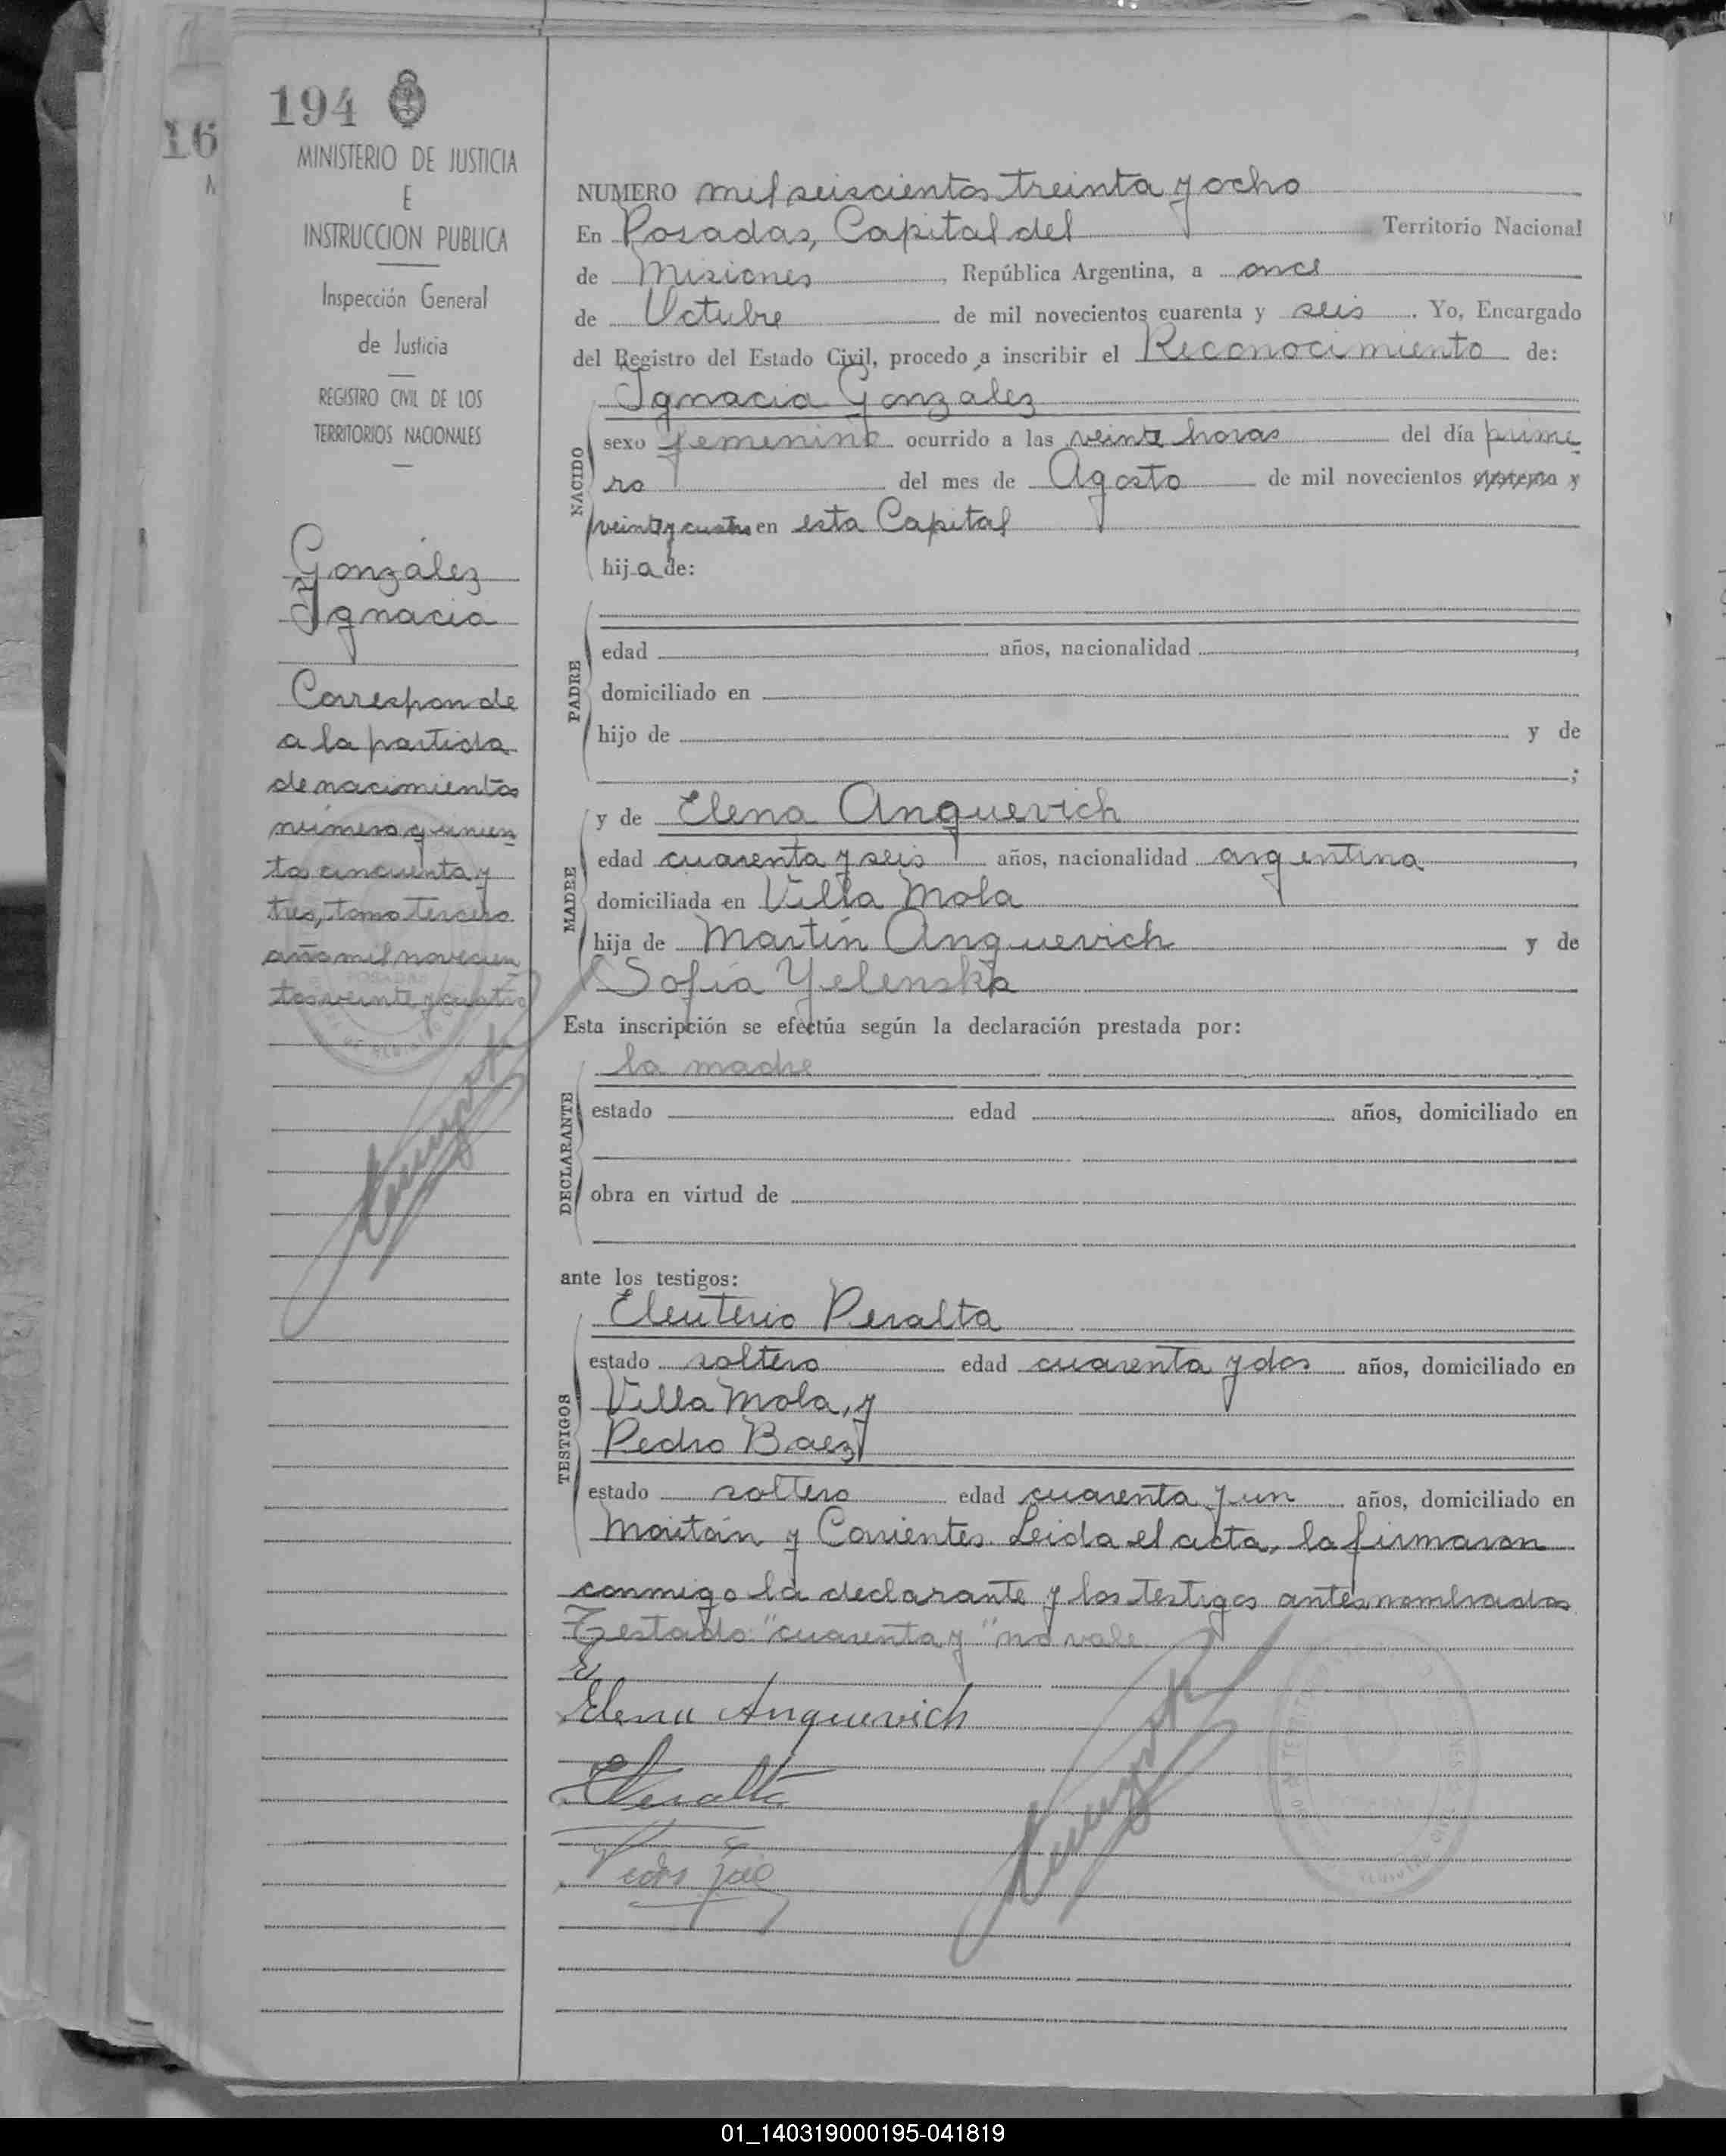 194
16
MINISTERIO DE JUSTICIA
E
INSTRUCCION PUBLICA
Inspección General
de Justicia
REGISTRO CIVIL DE LOS
TERRITORIOS NACIONALES
González
Ignacia
Corresponde
a la partida
de nacimientos
número quinien
tos cincuenta y
tres, tomo tercero
año mil novecien
tos veinte y cuatro
NUMERO mil seiscientos treinta y ocho
En Posadas, Capital del Territorio Nacional
de Misiones, República Argentina, a once
de Octubre de mil novecientos cuarenta y seis. Yo, Encargado
del Registro del Estado Civil, procedo a inscribir el Reconocimiento de:
NACIDO
Ignacia Gonzalez
sexo femenino ocurrido a las veinte horas del día prime
ro del mes de Agosto de mil novecientos cuarenta y
veinte y cuatro en esta Capital
hija de:
PADRE
edad años, nacionalidad ,
domiciliado en
hijo de y de
;
MADRE
y de Elena Anquevich
edad cuarenta y seis años, nacionalidad argentina,
domiciliada en Villa Mola
hija de Martín Anquevich y de
Sofía Yelenska
Esta inscripción se efectúa según la declaración prestada por:
DECLARANTE
la madre
estado edad años, domiciliado en
obra en virtud de
ante los testigos:
TESTIGOS
Eleuterio Peralta
estado soltero edad cuarenta y dos años, domiciliado en
Villa Mola, y
Pedro Baez
estado soltero edad cuarenta y un años, domiciliado en
Maitán y Corrientes. Leida el acta, la firmaron
conmigo la declarante y los testigos antes nombrados
Testado: "cuarenta y" no vale
Elena Anquevich
EPeralta
Pedro
01_140319000195-041819